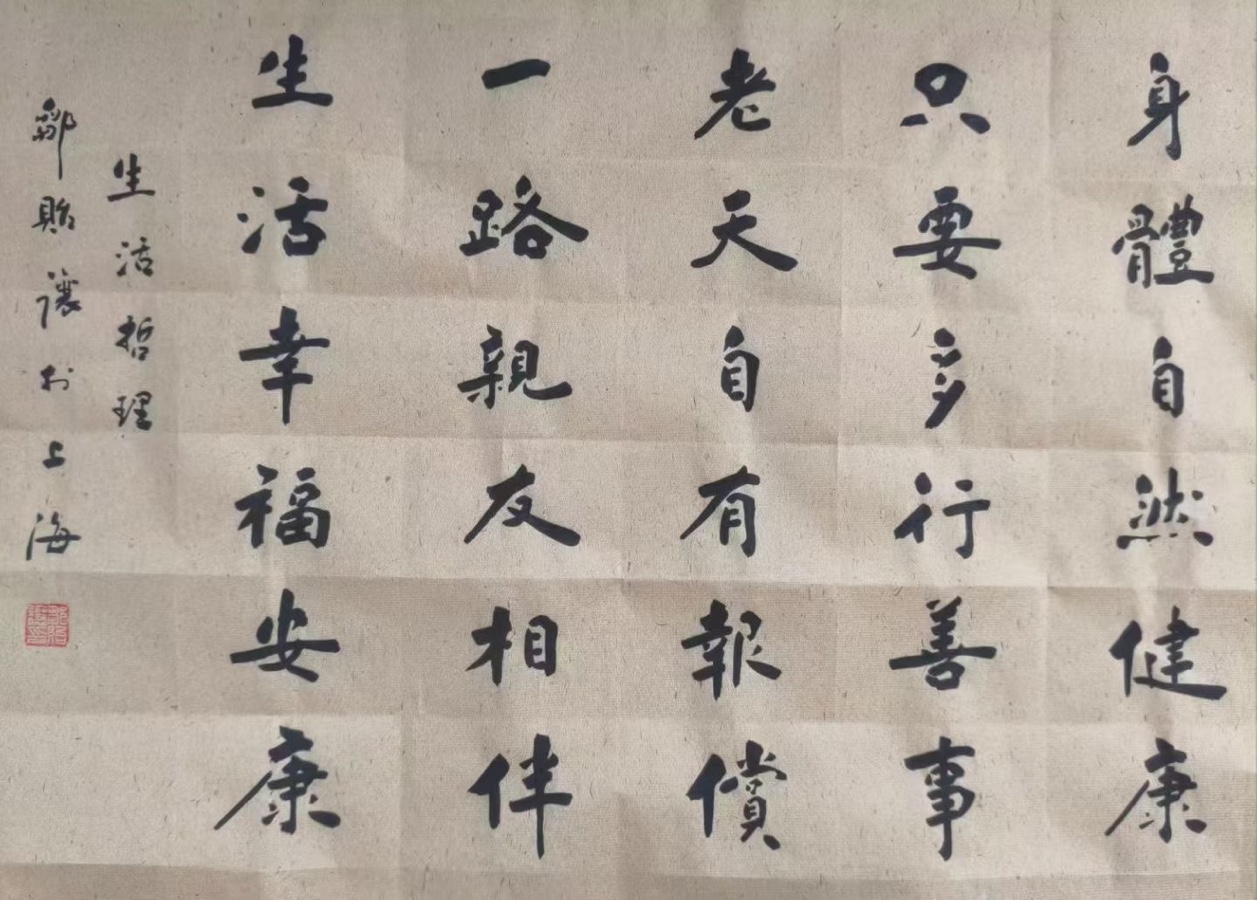 身體自然健康
只要多行善事
老天自有報償
一路親友相伴
生活幸福安康
生活哲理
鄒貽讓於上海